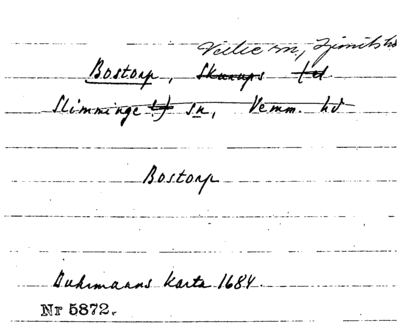 Vallie sn, Ljunits hd
Bostorp, Skurups (el
Slimminge?) sn, Vemm. hd
Bostorp
Buhrmanns Karta 1684.
Nr 5872.